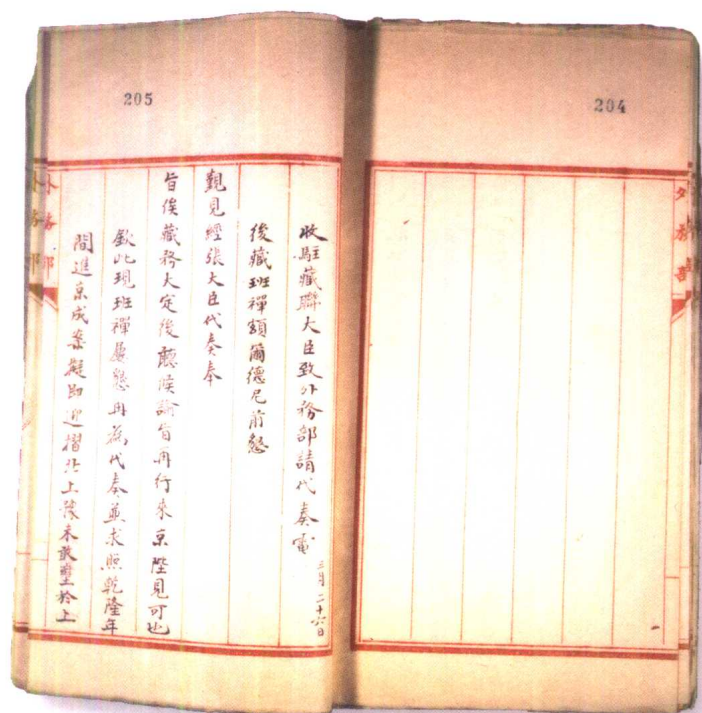 204
外務部
205
收駐藏聯大臣致外務部請代奏電 三月二十六日
後藏班禪額爾德尼前懇
覲見經張大臣代奏奉
旨俟藏務大定後聽候諭旨再行來京陛見可也
欽此現班禪屢懇再為代奏並求照乾隆年
間進京成案擬即迎摺北上豫未敢壅於上
外務部